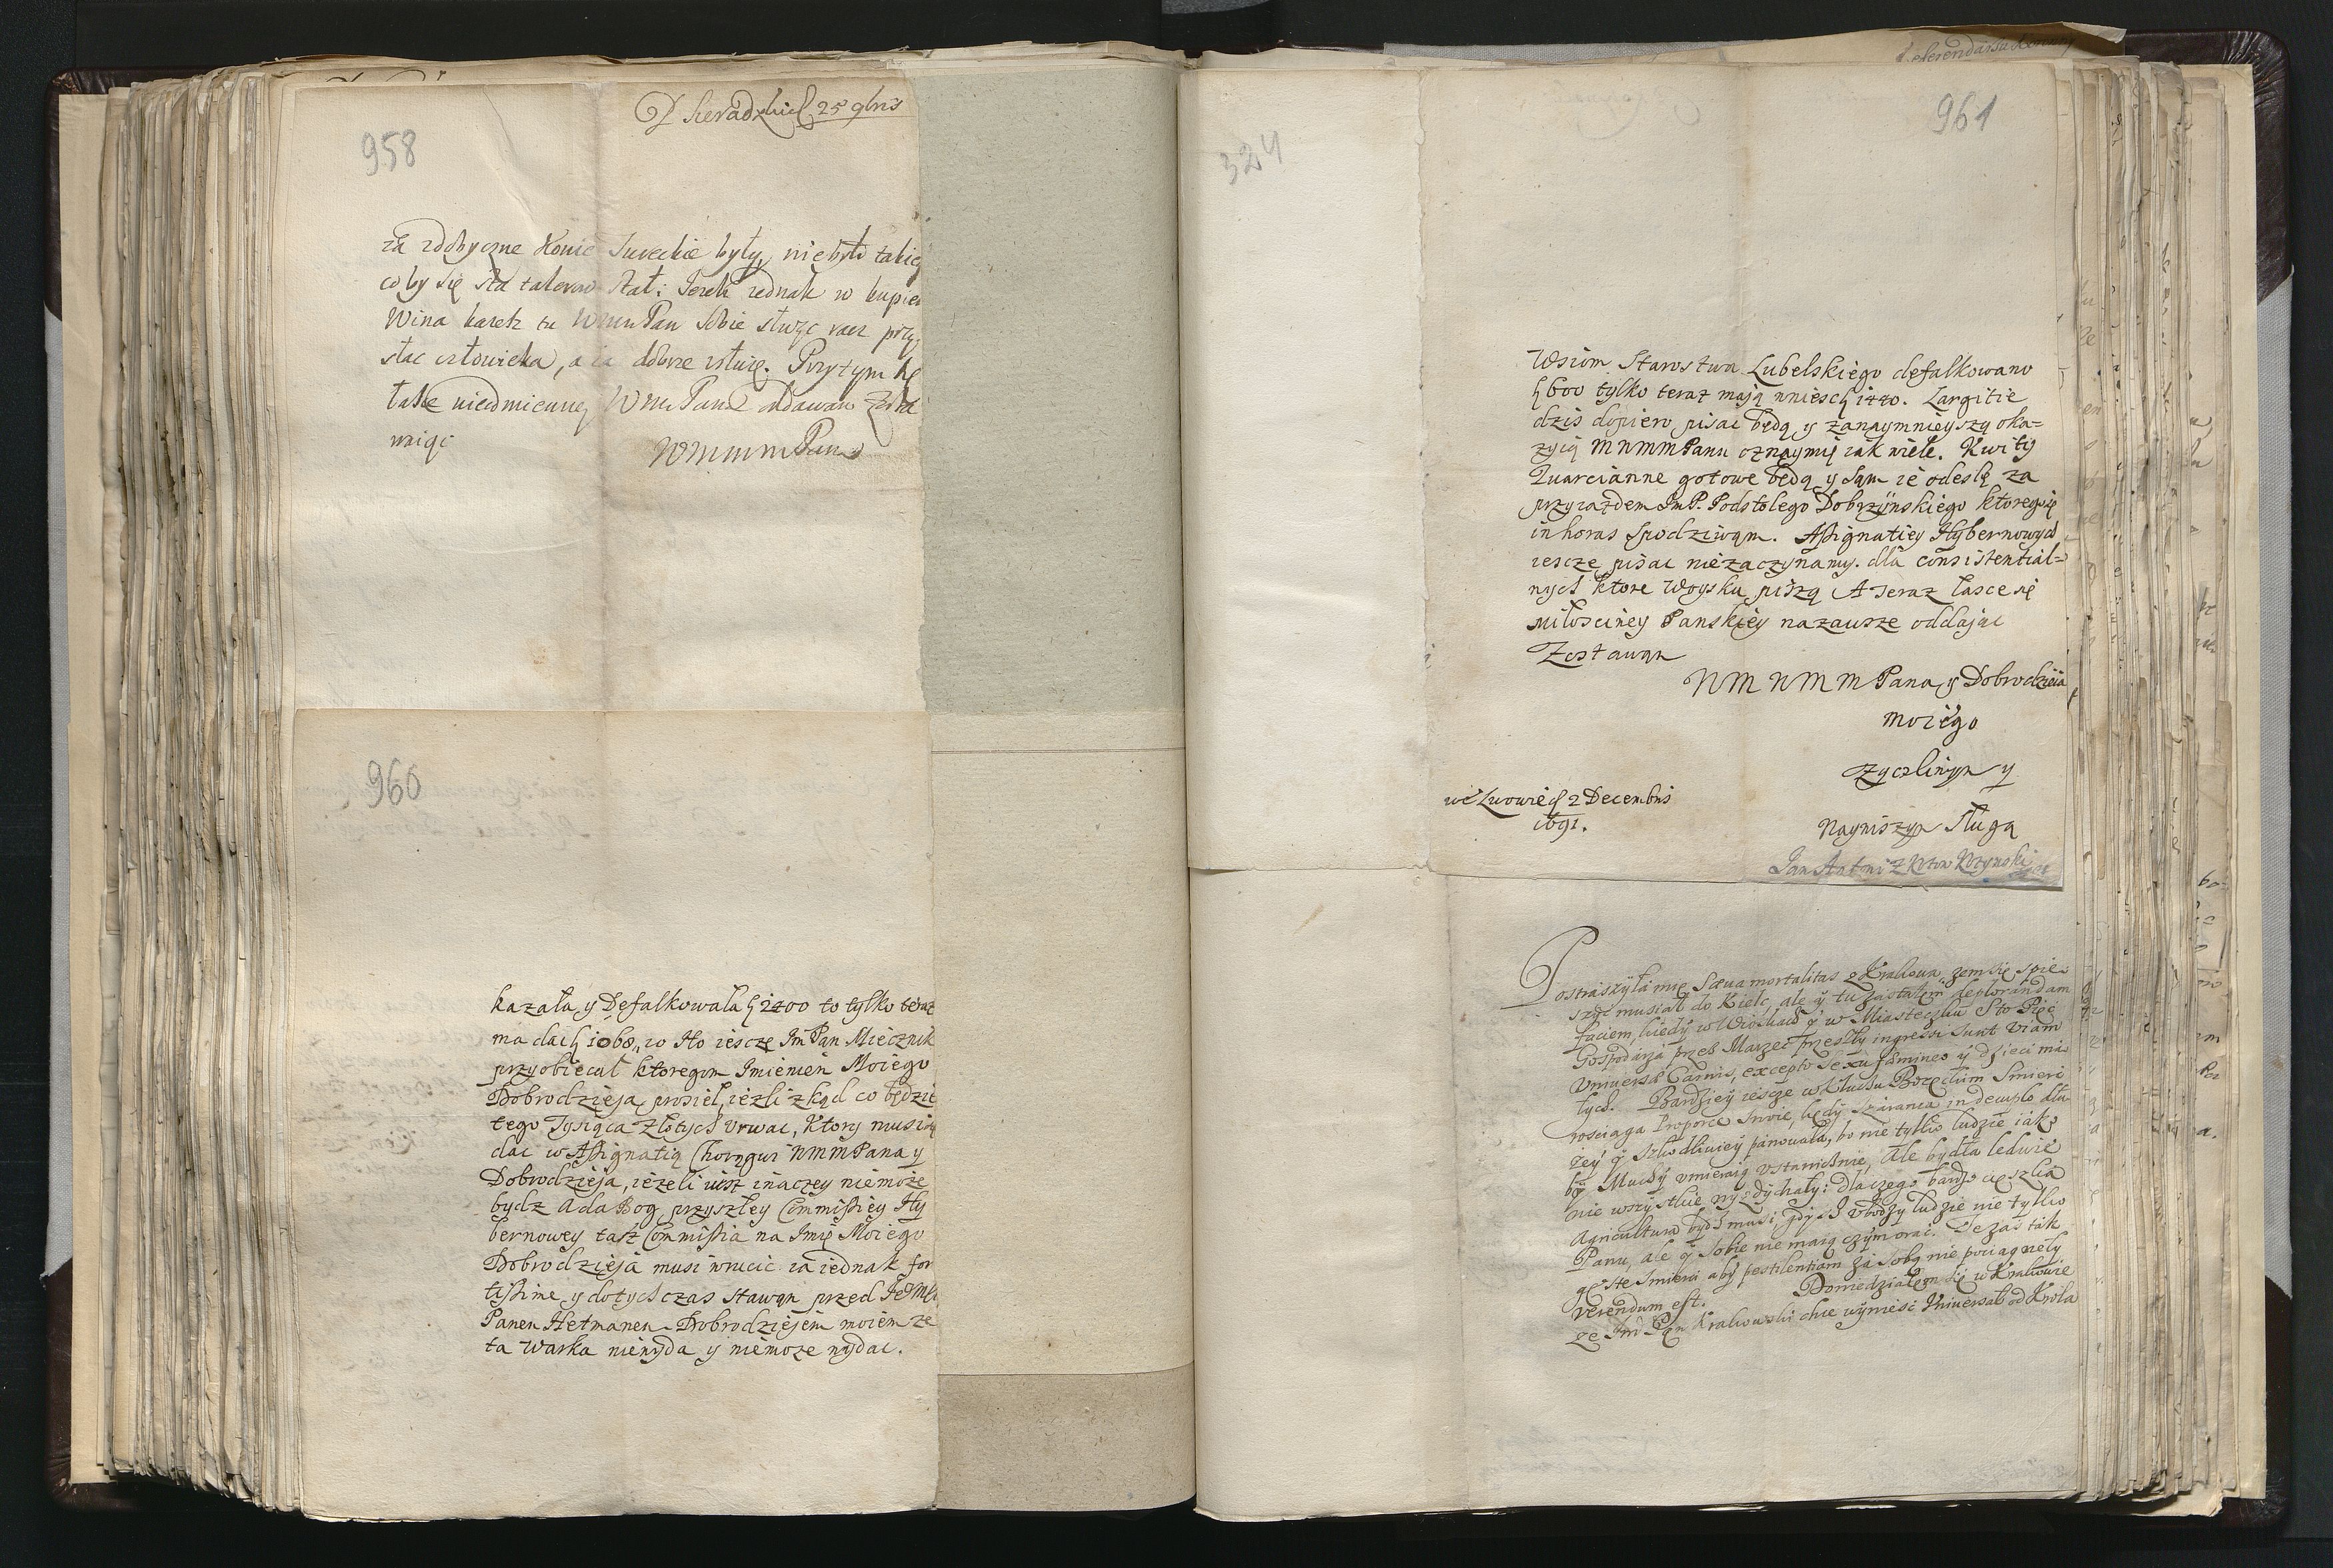 958
25 9bris
za zdobyczne Konie Tureckie były, niebyło takieg
coby się sta talerow stał: Jezeli iednak w kupien
Wina karetz tu WMM Pan sobie służyc racz przy
słac człowieka, a ia dobrze usłużę. Przytym
łasce nieodmienney WMM Pana oddawam
WMMM Pana
960
kazała y Defalkowała 2400 to tylko teraz
ma dac 1060, w Sto iescze Im Pan Miecznik
przyobiecał ktoregom Imieniem Moiego
Dobrodzieja prosieł, iezli zkąd co będzie
tego Tysiąca Złotych urwac, Ktory musi
dac w Assignatią Chorągwi WMM Pana y
Dobrodzieja, iezeli iusz inaczey niemoże
bydz Ada Bog przyszłey Commissiey Hy
bernowey tasz Commissia na Imię Moiego
Dobrodzieja musi wrucic ia iednak for
tissime y dotychczas stawąm przed JeMci
Panem Hetmanem Dobrodziejem moiem ze
ta Warka niewyda y niemoze wydac.
324
961
Wsiom Starostwa Lubelskiego defalkowano
600 tylko teraz mają wniesc 1440. Largitie
dzis dopiero pisac będą y zanaymnieyszą oka=
zyią WMMM Panu oznaymię iak wiele. Kwity
Quarcianne gotowe będą y sąm ie odeslę za
przyiazdem Im P. Podstolego Dobrzynskiego ktoregosię
in horas spodziwąm. Assignatiey Hybernowych
iescze pisac niezaczynamy. dla consistential=
nych ktore Woysku piszą A Teraz łasce się
miłosciwey Panskiey nazawsze oddając
Zostawąm
WM WM M Pana y Dobrodzieia
moiego
zyczliwym y
we Lwowie 2 Decembris
1691.
Nayniszym Sługą
Jan Antoni z
Postraszyłamię sæva mortalitas z Krakowa, zemsię spie=
szyc musiał do Kielc, ale y tu zastałem deplorandam
faciem, kiedy w Wioskach y w Miasteczku Sto Pięc
Gospodarza przes Marzec przeszły ingressi sunt viam
Universæ Carnis, excepto Sexu fœmineo y dzieci ma=
łych. Bardziey iescze w Kluczu Borzęcium Smierc
rosciąga Troporce swoie, kędy szarancza in decuplo dłu
zey y szkodliwiey panowała, bo nie tylko ludzie iako=
by Muchy umieraią ustawicznie, Ale bydła ledwie
nie wszystkie wyzdychały: dlaczego bardzo cięszka
Agricultura bydz musi, gdysz Ubodzy ludzie nie tylko
Panu, ale y sobie nie maią czym orac. Te zas tak
gęste smierci aby pestilentiam za sobą nie pociągneły
verendum est. Dowiedziałem się w Krakowie
ze Imc Pan Krakowski chce wyniesc Universał od Krola